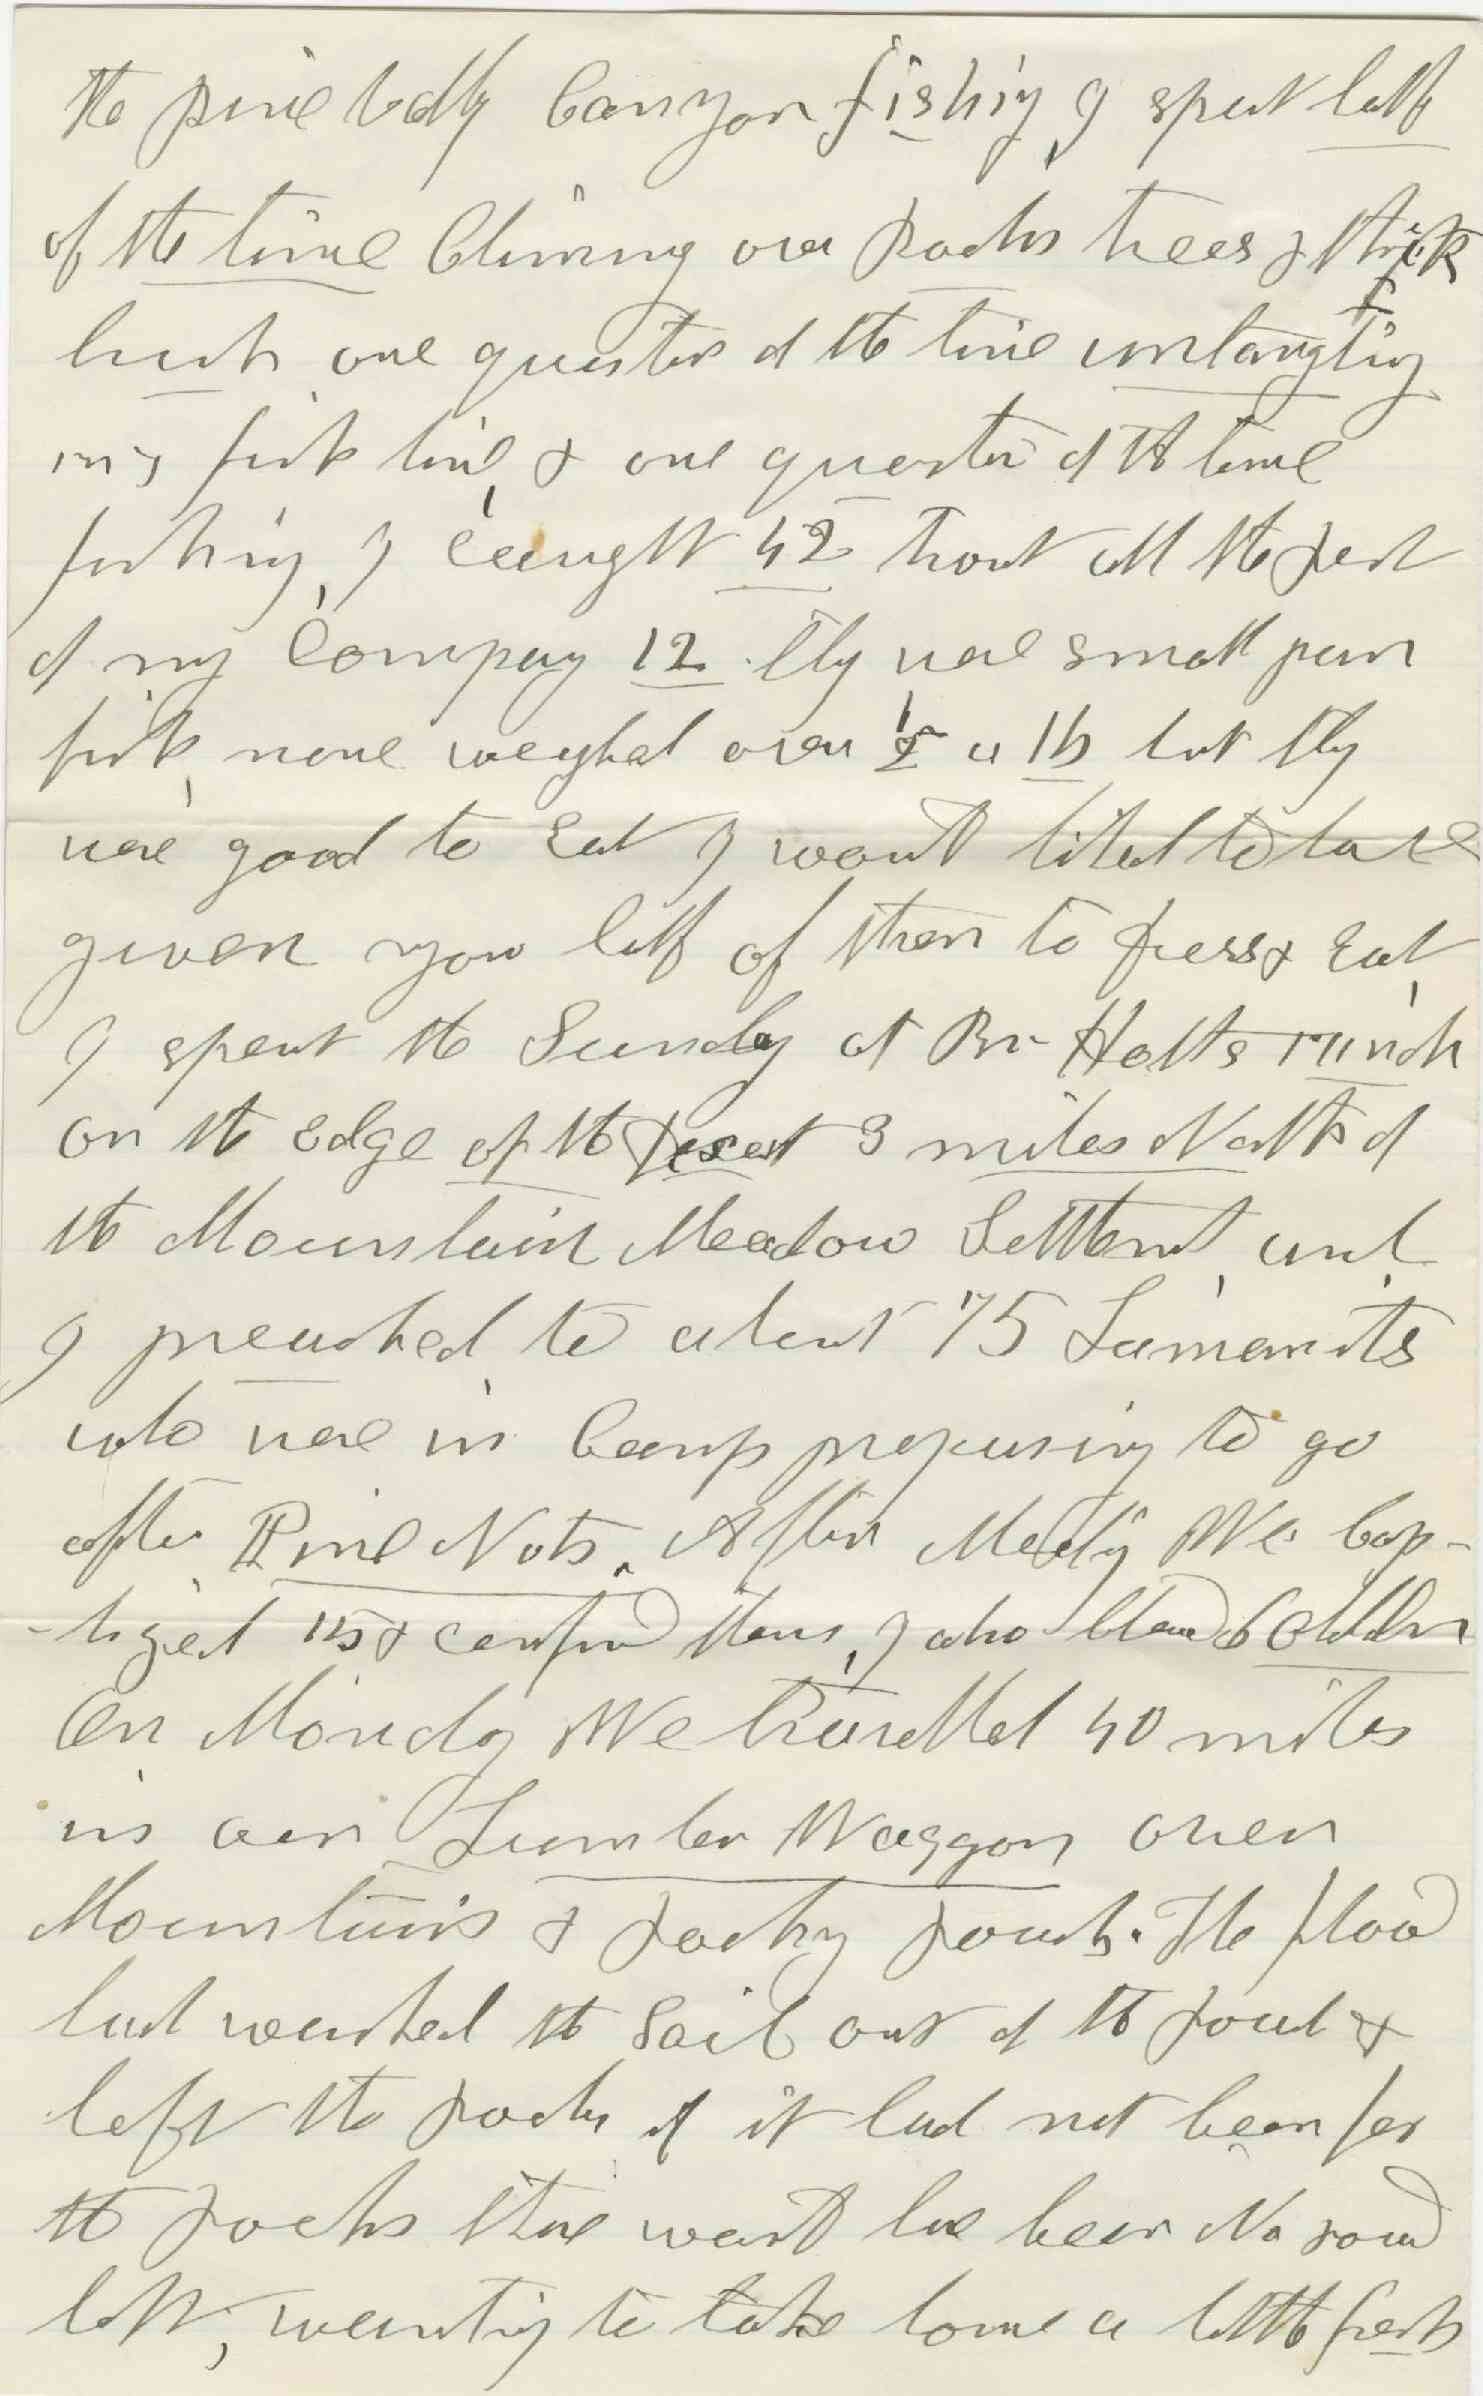 the pine vally Canyon fishing, I spent half
of the time Climing over Rocks trees & thick
brush one quarter of the time untangling
my fish line, & one quarter of the time
fishing, I caught 42 trout all the rest
of my Company 12. They were small pan
fish, none weighed over 1/2 a lb but they
were good to Eat I would liked to have
given you half of them to Dress & Eat,
I spent the Sunday at Br Holts ranch
on the edge of the Desert 3 miles North of
the Mountain Meadow Settlemt, and
I preached to about 75 Lamanits
who were in Camp preparing to go
after Pine Nuts. After Meeting We bap-
-tized & confirmed them, I also blessed 6 Children
On Monday We travelled 40 miles
in our Lumber Waggon over
Mountains & Rocky roads. The flood
had washed the Soil out of the road &
left the rocks if it had not been for
the rocks there would have been No road
left, wanting to take home a little fresh